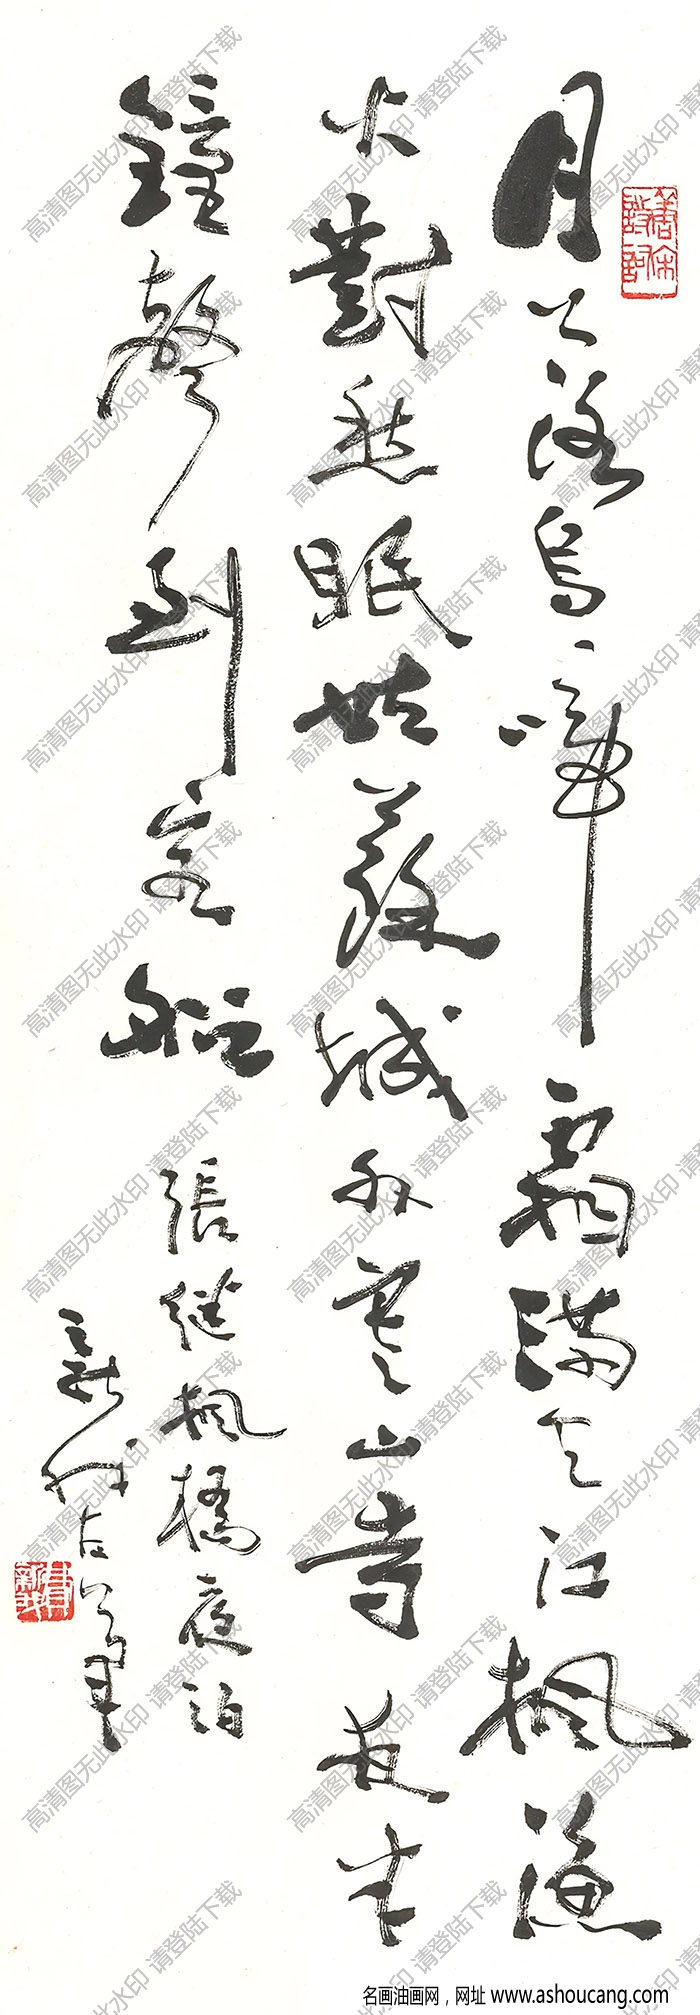 月落烏啼霜滿天江枫漁
火對愁眠姑蘇城外寒山寺夜半
鐘聲到客船
張继枫橋夜泊
新我左筆
費新我
高清图无此水印 请登陆下载
名画油画网，网址 www.ashoucang.com